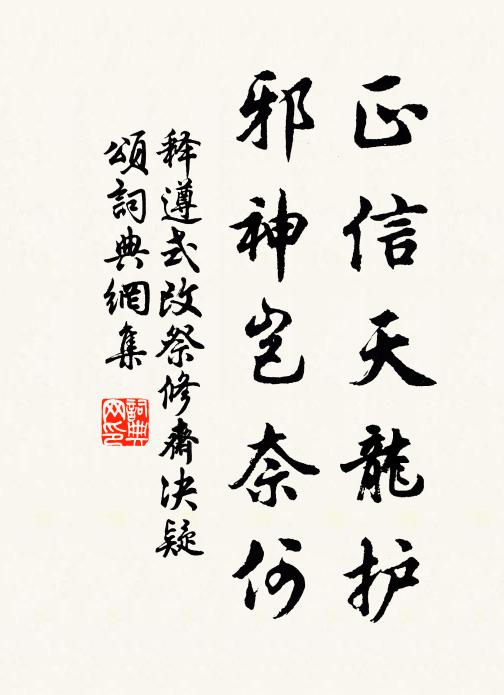 正信天龍护
邪神岂奈何
释遵式改祭修齋决疑
頌詞典網集
詞典网印